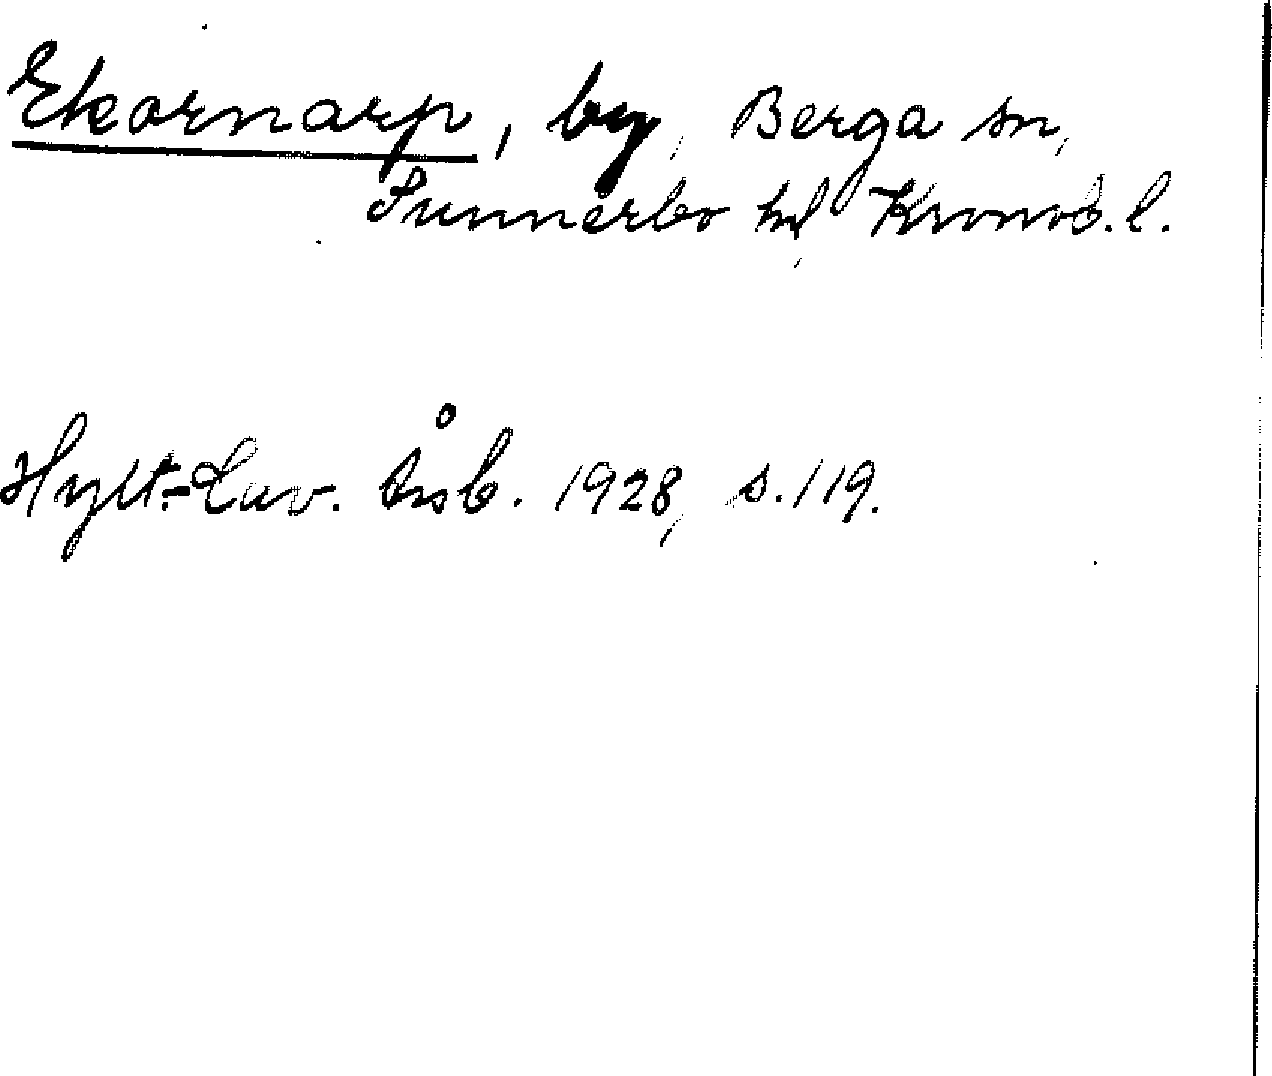 Ekornarp, by, Berga sn,
Sunnerbo hd, Kronob. l.
Hylt.-Cav. Åsb. 1928, s. 119.